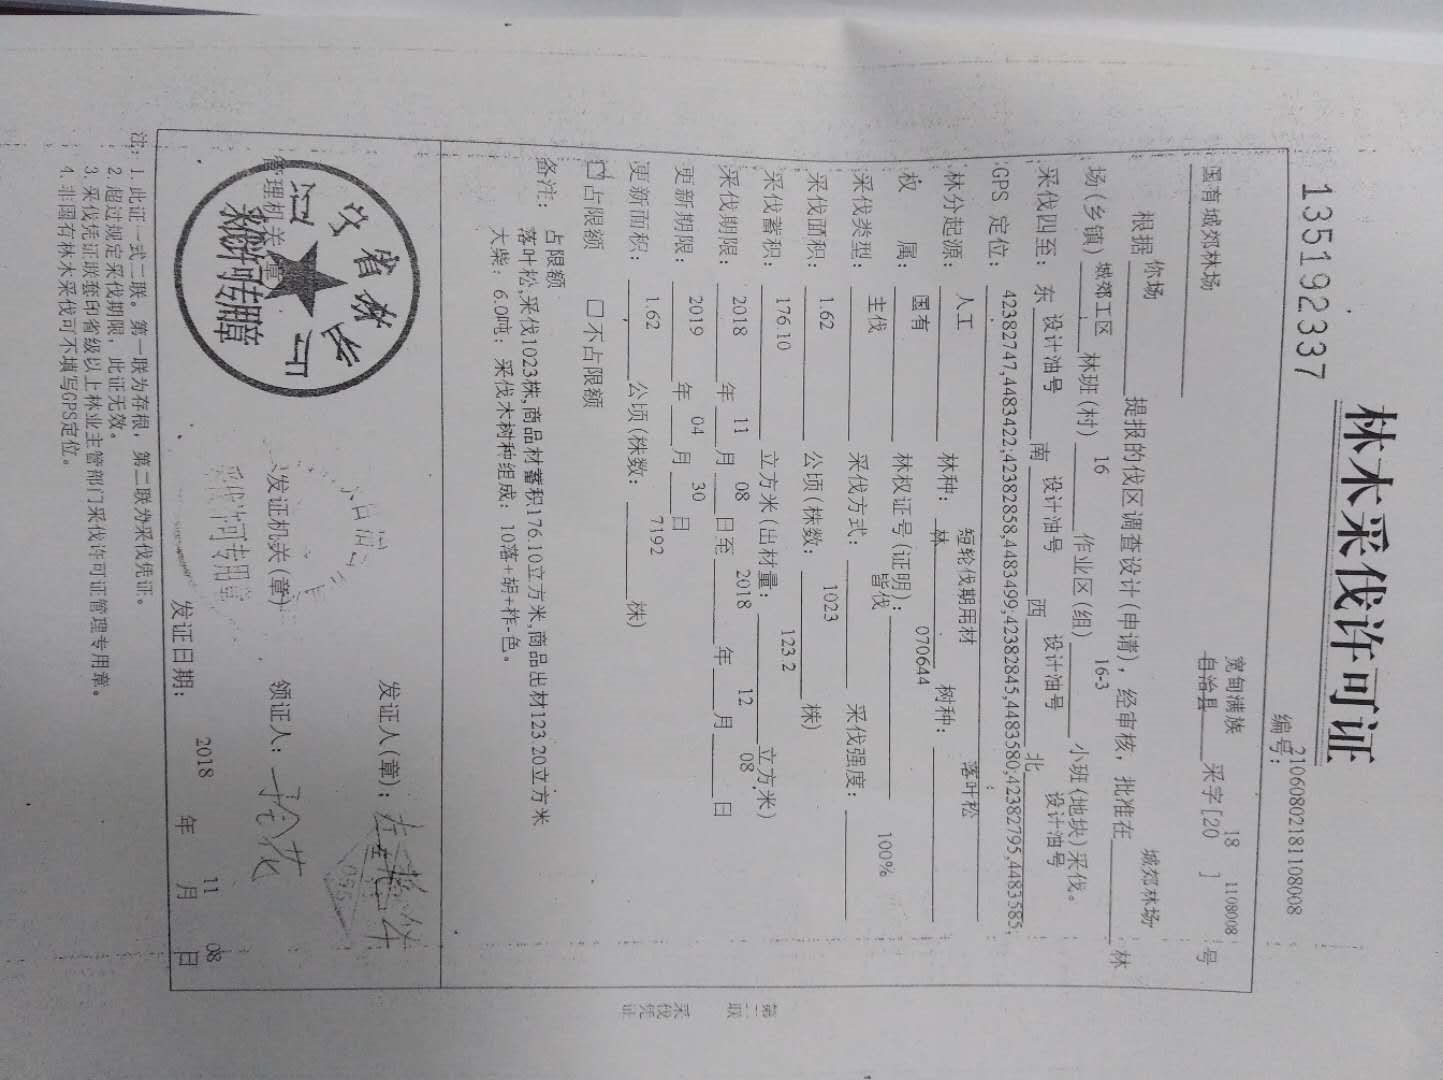 林木采伐许可证
135192337
编号：210608021811 08008
国有城郊林场
宽甸满族自治县 采字[20 18 ] 1108008 号
根据 你场 提报的伐区调查设计(申请)，经审核，批准在 城郊林场 林
场(乡镇) 城郊工区 林班(村) 16 作业区(组) 16-3 小班(地块)采伐。
采伐四至：东 设计油号 南 设计油号 西 设计油号 北 设计油号
GPS 定位：42382747,4483422;42382858,4483499;42382845,4483580;42382795,4483585;
林分起源： 人工 林种： 短轮伐期用材林 树种： 落叶松
权 属： 国有 林权证号(证明)： 070644
采伐类型： 主伐 采伐方式： 皆伐 采伐强度： 100%
采伐面积： 1.62 公顷(株数： 1023 株)
采伐蓄积： 176.10 立方米(出材量： 123.2 立方米)
采伐期限： 2018 年 11 月 08 日至 2018 年 12 月 08 日
更新期限： 2019 年 04 月 30 日
更新面积： 1.62 公顷(株数： 7192 株)
占限额 不占限额
备注： 占限额
落叶松,采伐1023株,商品材蓄积176.10立方米,商品出材123.20立方米
大柴：6.0吨；采伐木树种组成：10落+胡+柞-色。
管理机关(章)
辽宁省林业厅
采伐许可专用章
发证机关(章)
采伐许可专用章
发证人(章)：
领证人：
发证日期： 2018 年 11 月 08 日
注：1.此证一式二联。第一联为存根，第二联为采伐凭证。
2.超过规定采伐期限，此证无效。
3.采伐凭证联套印省级以上林业主管部门采伐许可证管理专用章。
4.非国有林木采伐可不填写GPS定位。
第二联 采伐凭证